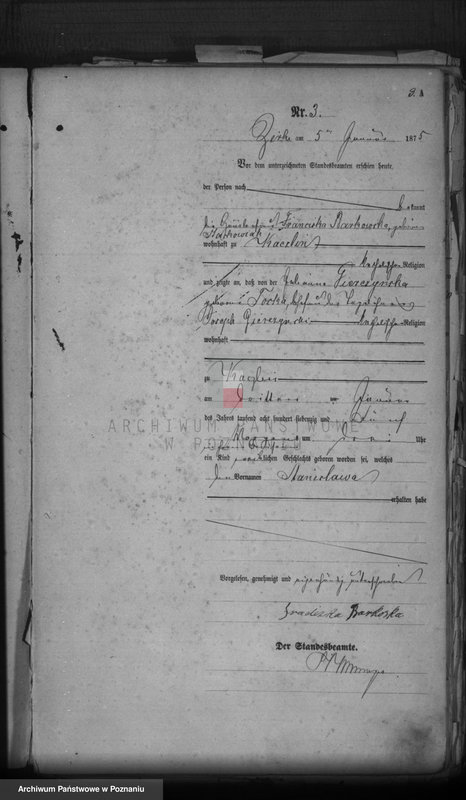 3.
Nr. 3.
Zirke am 5ten Januar 1875
Vor dem unterzeichneten Standesbeamten erschien heute,
der Person nach
bekannt
die Franciska Barkowska, geborene
wohnhaft zu Kaczlin
katholischer Religion
und zeigte an, daß von der
geborene Tocka, Ehefrau des
Joseph katholischer Religion
wohnhaft
zu Kaczlin
am dritten Januar
des Jahres tausend acht hundert siebenzig und fünf
Morgens um Uhr
ein Kind weiblichen Geschlechts geboren worden sei, welches
den Vornamen Stanislawa
erhalten habe
Vorgelesen, genehmigt und eigenhändig unterschrieben
Barkoska
Der Standesbeamte.
ARCHIWUM PAŃSTWOWE
W POZNANIU
Archiwum Państwowe w Poznaniu